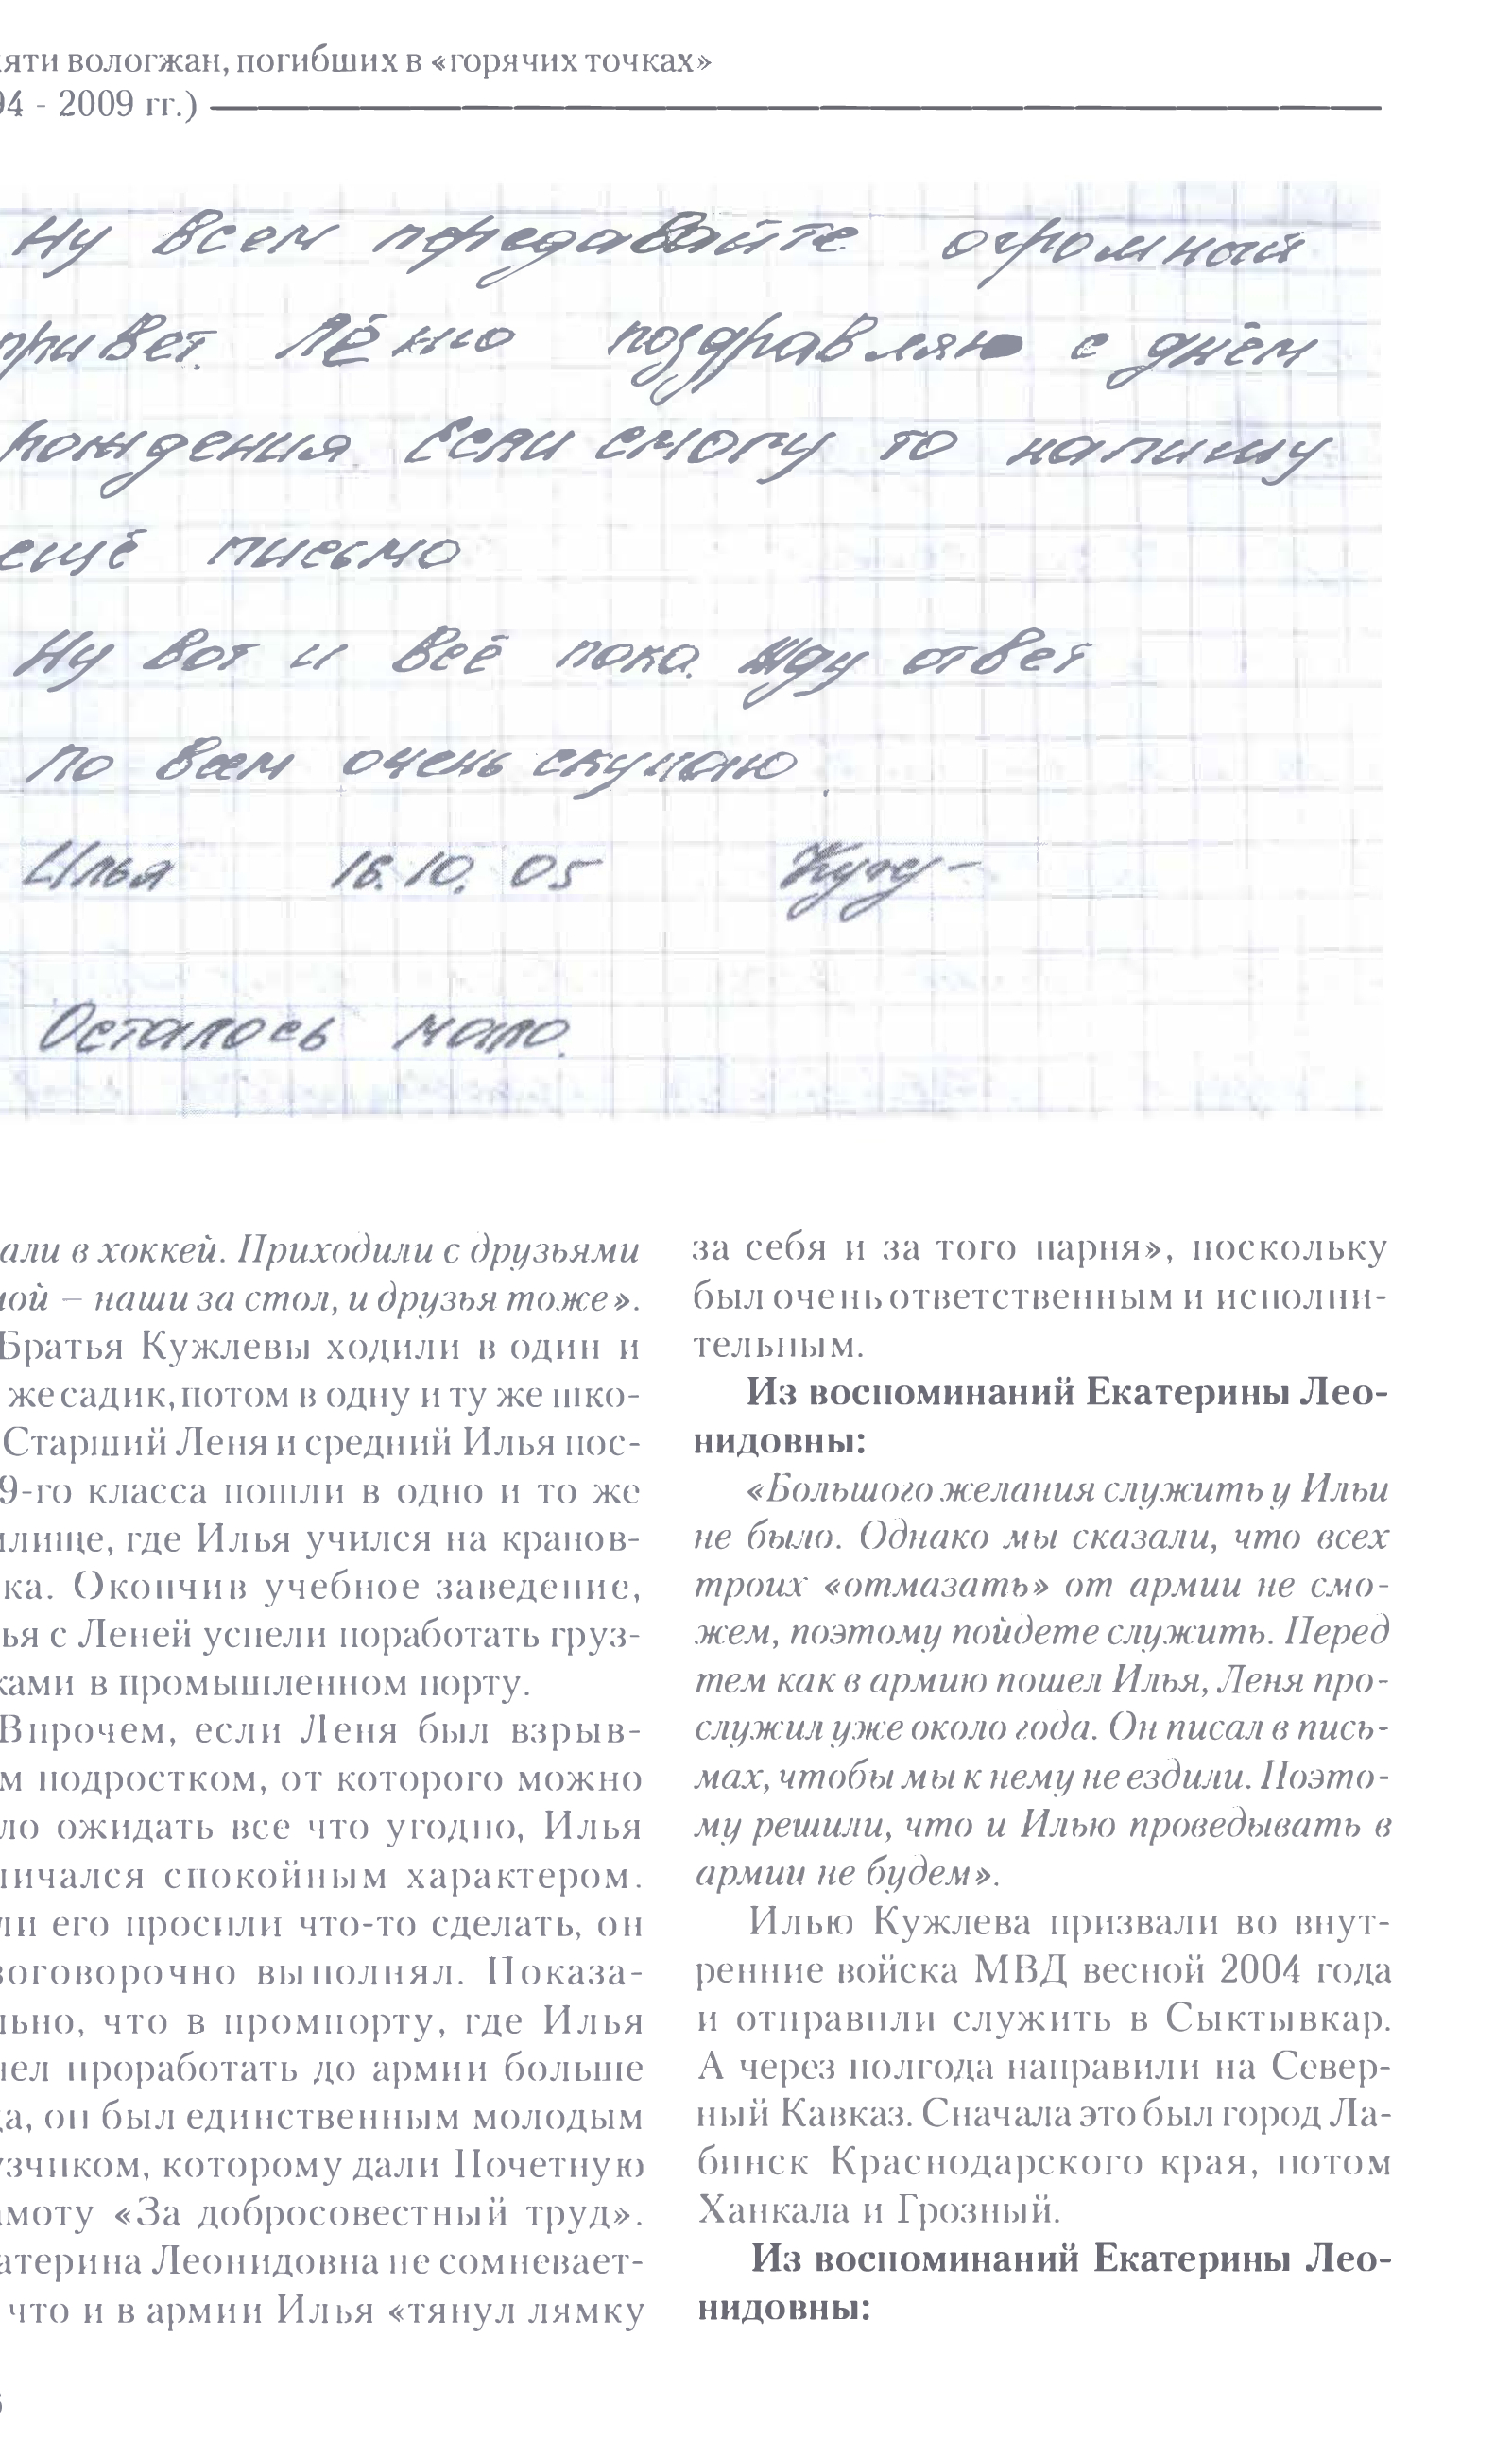 яти вологжан, погибших в «горячих точках»
94 - 2009 гг.)
Ну всем передавайте огромный
привет. Лёню поздравляю с днём
рождения. Если смогу то напишу
ещё письмо
Ну вот и всё пока. Жду ответ
По всем очень скучаю.
Илья 16.10.05
Осталось мало.
али в хоккей. Приходили с друзьями
ой – наши за стол, и друзья тоже».
Братья Кужлевы ходили в один и
же садик, потом в одну и ту же шко-
Старший Леня и средний Илья пос-
9-го класса пошли в одно и то же
илище, где Илья учился на кранов-
ка. Окончив учебное заведение,
ья с Леней успели поработать груз-
ками в промышленном порту.
Впрочем, если Леня был взрыв-
м подростком, от которого можно
ло ожидать все что угодно, Илья
личался спокойным характером.
ли его просили что-то сделать, он
зоговорочно выполнял. Показа-
льно, что в промпорту, где Илья
пел проработать до армии больше
да, он был единственным молодым
узчиком, которому дали Почетную
амоту «За добросовестный труд».
атерина Леонидовна не сомневает-
что и в армии Илья «тянул лямку
за себя и за того парня», поскольку
был очень ответственным и исполни-
тельным.
Из воспоминаний Екатерины Лео-
нидовны:
«Большого желания служить у Ильи
не было. Однако мы сказали, что всех
троих «отмазать» от армии не смо-
жем, поэтому пойдете служить. Перед
тем как в армию пошел Илья, Леня про-
служил уже около года. Он писал в пись-
мах, чтобы мы к нему не ездили. Поэто-
му решили, что и Илью проведывать в
армии не будем».
Илью Кужлева призвали во внут-
ренние войска МВД весной 2004 года
и отправили служить в Сыктывкар.
А через полгода направили на Север-
ный Кавказ. Сначала это был город Ла-
бинск Краснодарского края, потом
Ханкала и Грозный.
Из воспоминаний Екатерины Лео-
нидовны: